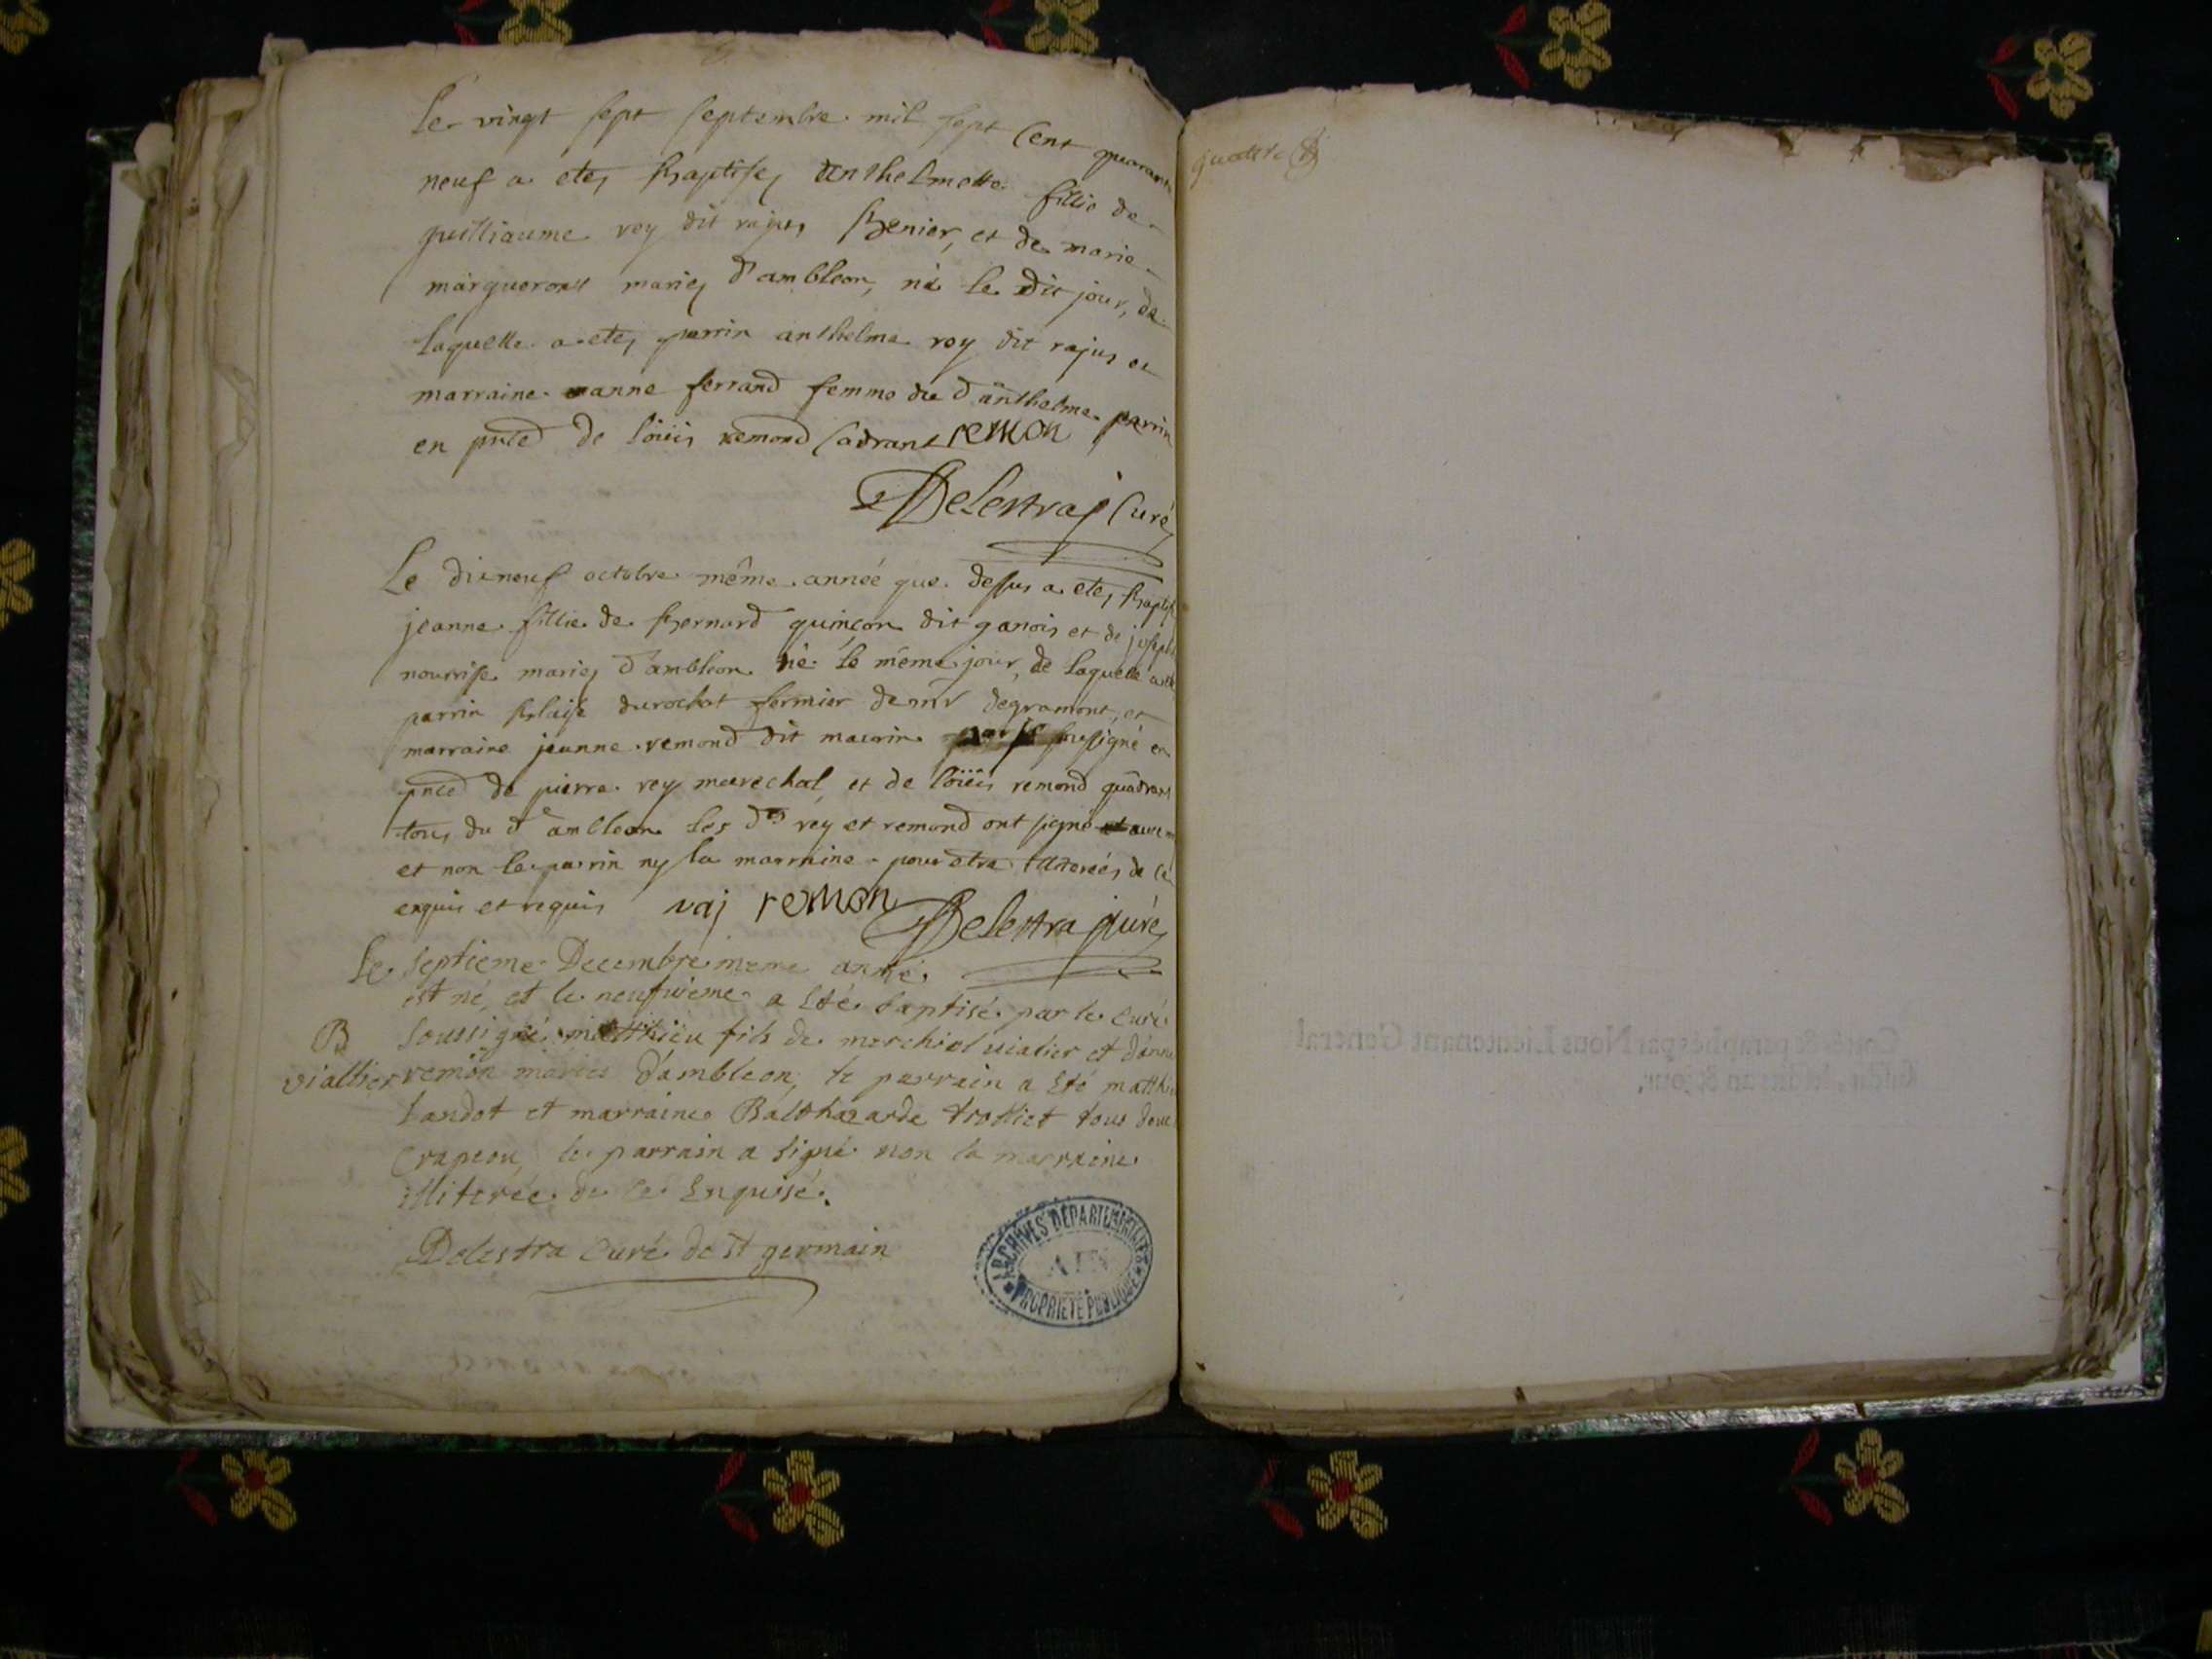 Le vingt sept septembre mil sept cent quarante
neuf a etez baptisez anthelmette fillie de
guilliaume roy dit rajus benier, et de marie
margueront mariez d'ambleon, né le dit jour, de
laquelle a etez parrin anthelme roy dit rajus et
marraine anne ferrand femme du d anthelme parrin
en pnce de loüis remond cadrant remon
Delestraz Curé
Le dineuf octobre même année que dessus a etez baptisé
jeanne fillie de bernard quinçon dit ganois et de joseph
nourrise mariez d'ambleon né le même jour, de laquelle a été
parrin blaise durochat fermier de mr degramont, et
marraine jeanne remond dit maurin soussigné en
pnce de pierre rey marechal, et de loüis remond quadrant
tous du d ambleon les d rey et remond ont signé
et non le parrin ny la marraine pour etre illiterées de ce
enquis et requis raj remon
Delestra curé
Le septieme Decembre meme année
est né, et le neufvieme a été baptisé par le curé
B soussigné matthieu fils de merchiol vialier et d'anne
viallier remon mariés d'ambleon, le parrain a été matthieu
landot et marraine Balthazarde trolliet tous deux
Crapeou, le parrain a signé non la marraine
illiterée de ce Enquisé.
Delestra Curé de st germain
ARCHIVES DÉPARTEMENTALES
AIN
PROPRIÉTÉ PUBLIQUE
quattre
Cotté & paraphé par Nous Lieutenant General
an & jour,